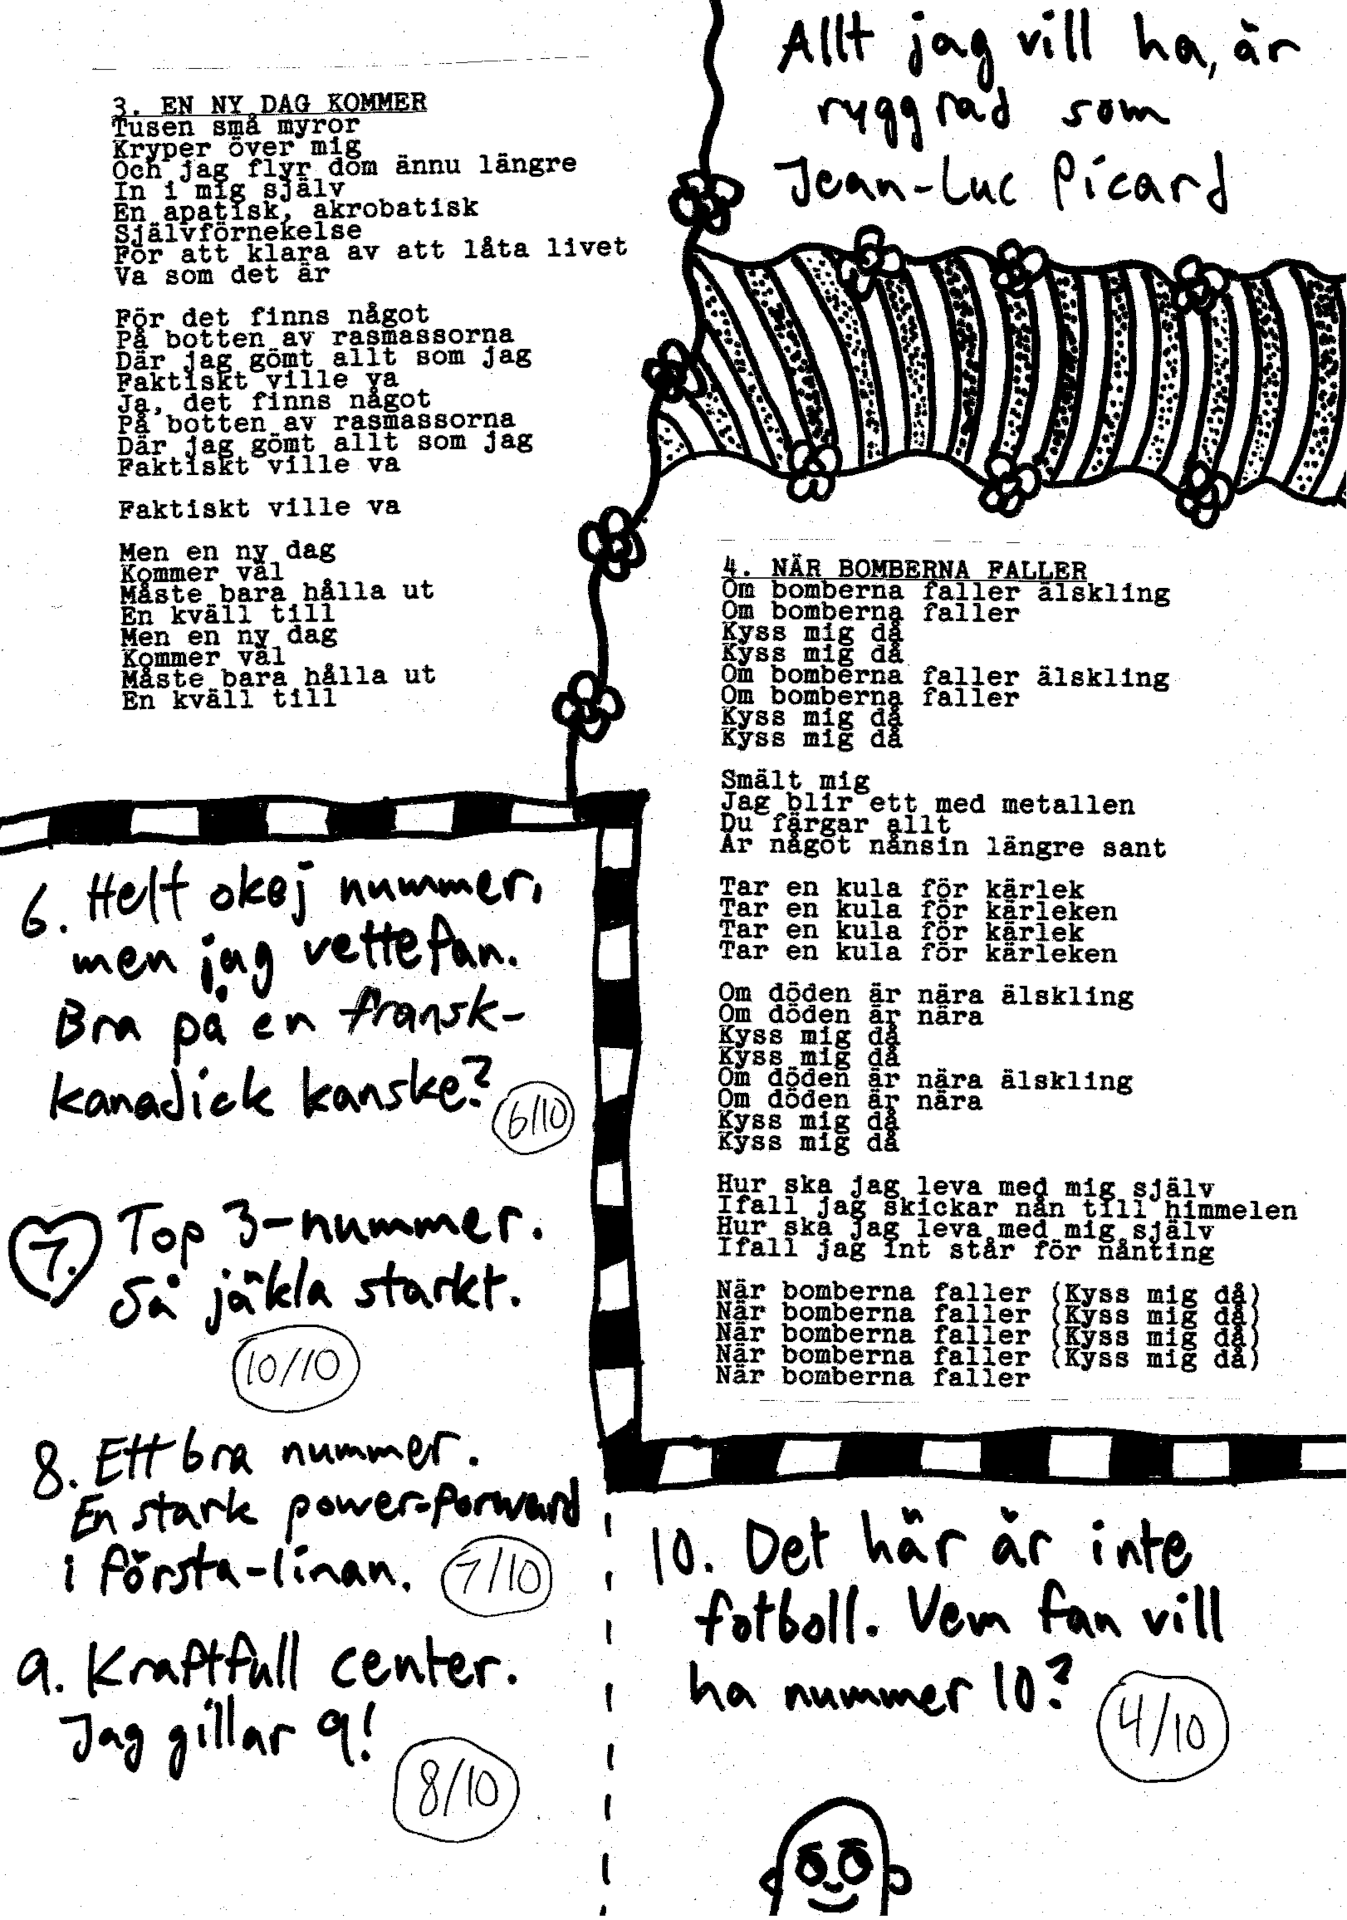 3. EN NY DAG KOMMER
Tusen små myror
Kryper över mig
Och jag flyr dom ännu längre
In i mig själv
En apatisk, akrobatisk
Självförnekelse
För att klara av att låta livet
Va som det är
För det finns något
På botten av rasmassorna
Där jag gömt allt som jag
Faktiskt ville va
Ja, det finns något
På botten av rasmassorna
Där jag gömt allt som jag
Faktiskt ville va
Faktiskt ville va
Men en ny dag
Kommer väl
Måste bara hålla ut
En kväll till
Men en ny dag
Kommer väl
Måste bara hålla ut
En kväll till
Allt jag vill ha, är
ryggrad som
Jean-Luc Picard
4. NÄR BOMBERNA FALLER
Om bomberna faller älskling
Om bomberna faller
Kyss mig då
Kyss mig då
Om bomberna faller älskling
Om bomberna faller
Kyss mig då
Kyss mig då
Smält mig
Jag blir ett med metallen
Du färgar allt
Är något nånsin längre sant
Tar en kula för kärlek
Tar en kula för kärleken
Tar en kula för kärlek
Tar en kula för kärleken
Om döden är nära älskling
Om döden är nära
Kyss mig då
Kyss mig då
Om döden är nära älskling
Om döden är nära
Kyss mig då
Kyss mig då
Hur ska jag leva med mig själv
Ifall jag skickar nån till himmelen
Hur ska jag leva med mig själv
Ifall jag int står för nånting
När bomberna faller (Kyss mig då)
När bomberna faller (Kyss mig då)
När bomberna faller (Kyss mig då)
När bomberna faller (Kyss mig då)
När bomberna faller
6. Helt okej nummer,
men jag vettefan.
Bra på en fransk-
kanadick kanske?
6/10
7. Top 3-nummer.
Så jäkla starkt.
10/10
8. Ett bra nummer.
En stark power-forward
i första-linan. 7/10
9. Kraftfull center.
Jag gillar 9!
8/10
10. Det här är inte
fotboll. Vem fan vill
ha nummer 10?
4/10